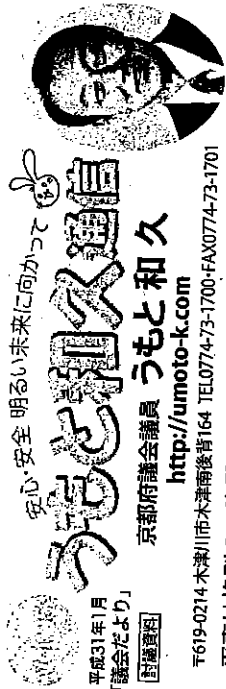 安心・安全 明るい未来に向かって
うもと和久通信
平成31年1月
「議会だより」
討議資料
京都府議会議員 うもと和久
http://umoto-k.com
〒619-0214 木津川市木津南後背164 TEL0774-73-1700・FAX0774-73-1701